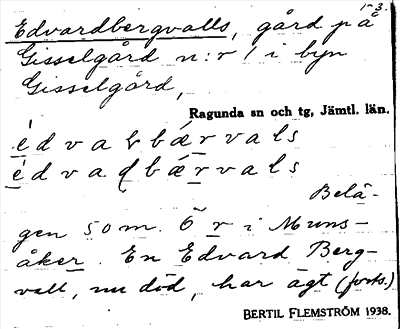 1-3.
Edvardbergvalls, gård på
Gisselgård n:r 1 i byn
Gisselgård,
Ragunda sn och tg, Jämtl. län.
é d v a b b æ r v a l s
é d v a ɖ b æ r v a l s
Belä-
gen 50 m. Ö r i Muns-
åker. En Edvard Berg-
vall, nu död, har ägt (forts.)
BERTIL FLEMSTRÖM 1938.